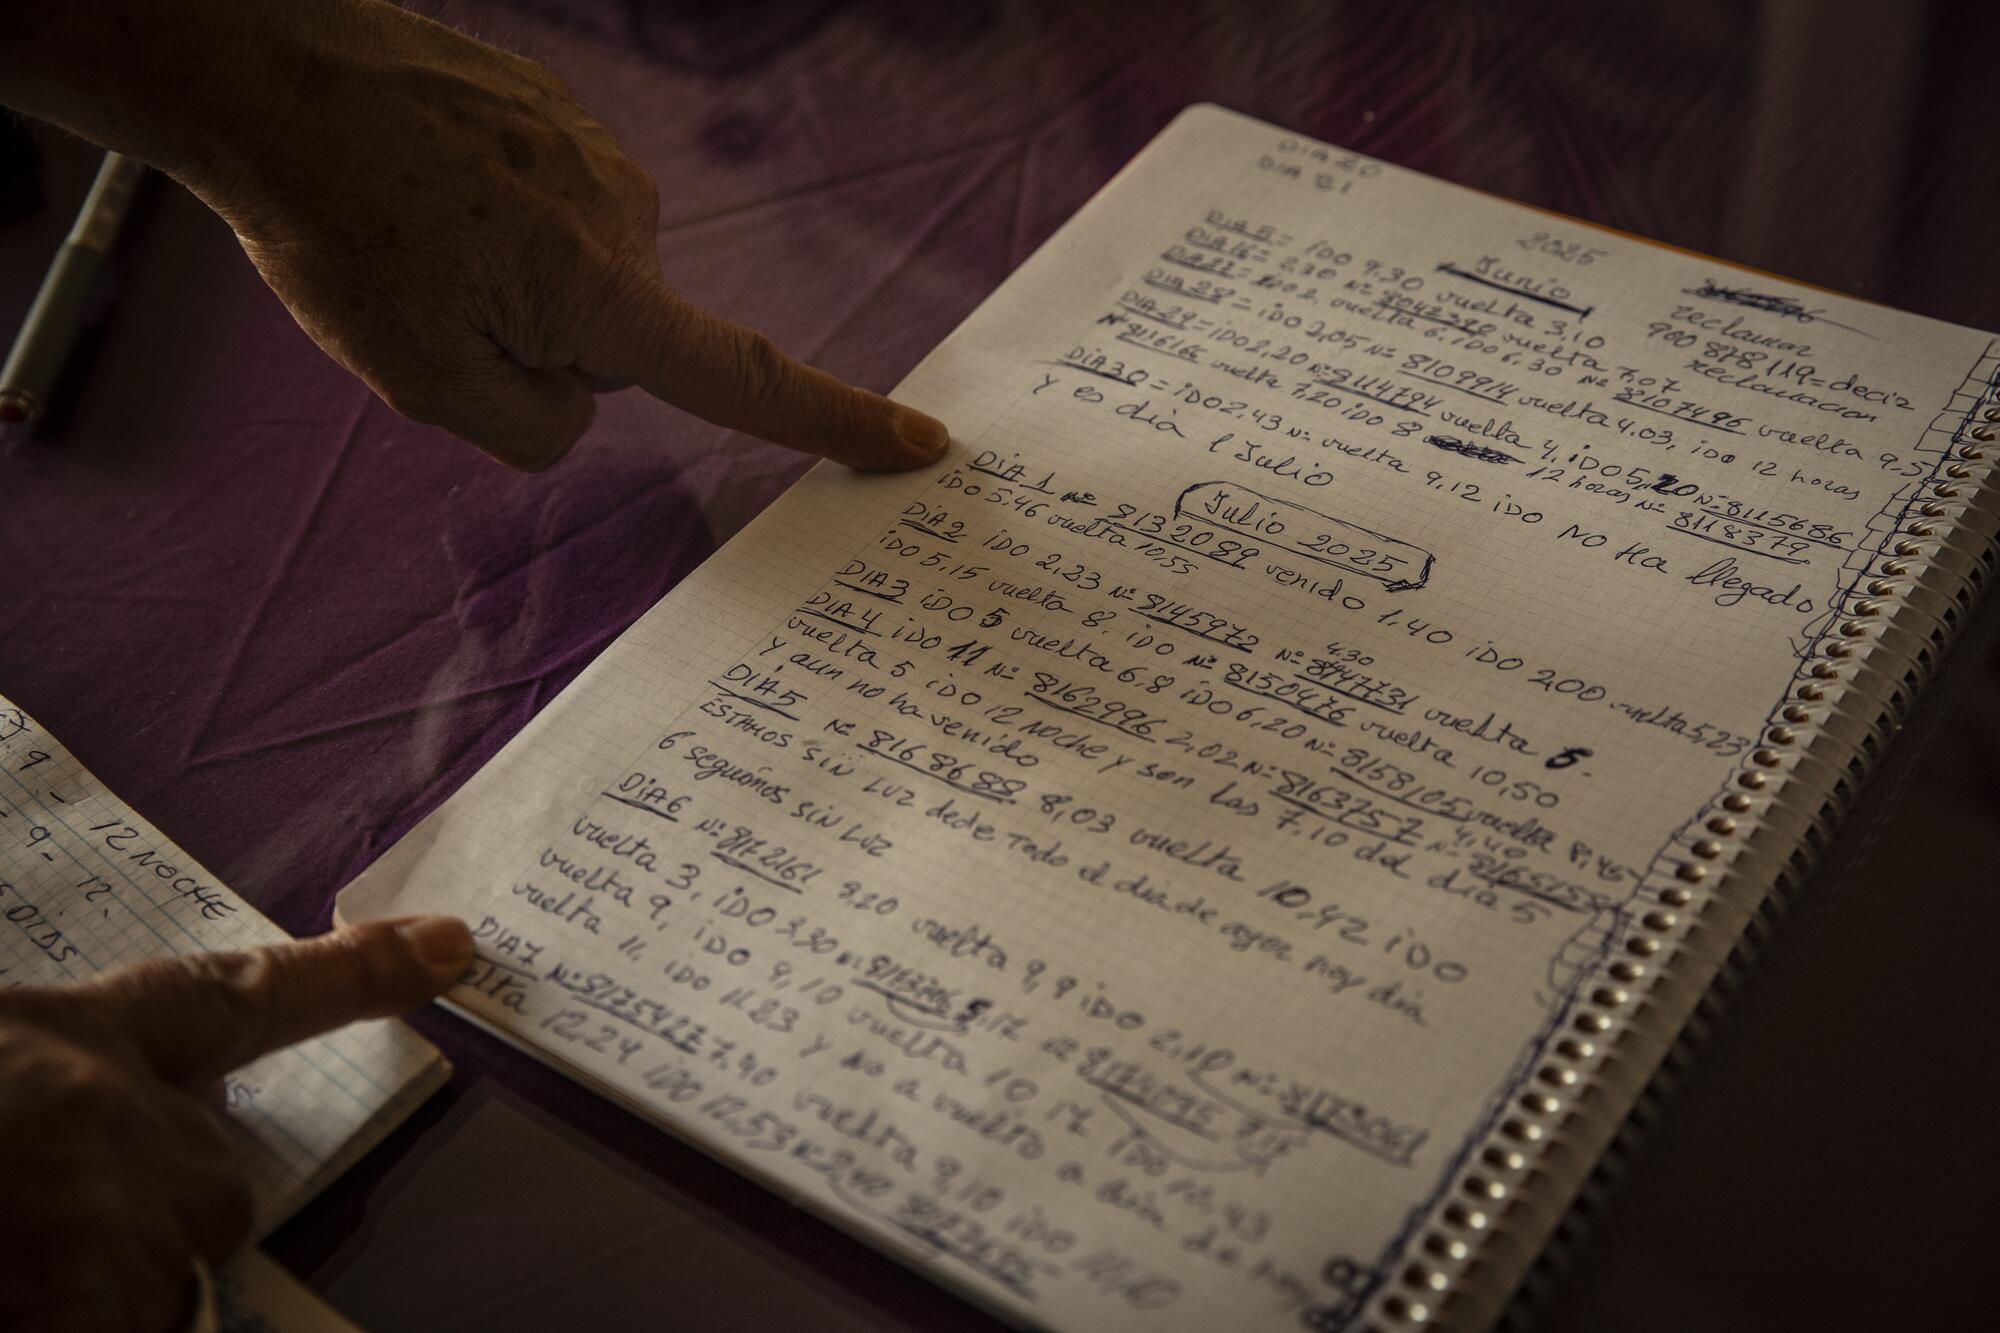 DIA 20
DIA 21
2025
Junio
reclamar
900 878 119 = decir
reclamacion
DIA 5 = iDO 9.30 vuelta 3,10
DIA 16 = 2.30 Nº 8042370 vuelta 7,07
vuelta 6. iDO 6.30 Nº 8107496 vuelta 9,5
DIA 28 = iDO 2,05 Nº 8109914 vuelta 4.03, iDO 12 horas
DIA 29 = iDO 2,20 Nº 8114794 vuelta 4, iDO 5,20 Nº 8115686
Nº 8116166 vuelta 7,20 iDO 8 12 horas Nº 8118379
DIA 30 = iDO 2,43 Nº vuelta 9,12 iDO NO Ha llegado
y es dia 1 Julio
Julio 2025
DIA 1 Nº 8132089 venido 1,40 iDO 2,00 vuelta 5,23
iDO 5.46 vuelta 10,55
DIA 2 iDO 2,23 Nº 8145972 Nº 8147731 vuelta 5.
4.30
iDO 5,15 vuelta 8. iDO Nº 8150476 vuelta 10,50
DIA 3 iDO 5 vuelta 6,8 iDO 6,20 Nº 8158105 vuelta 8,46
DIA 4 iDO 11 Nº 8162996 2,02 Nº 8163757 4,40 Nº
vuelta 5 iDO 12 NOche y son las 7.10 del dia 5
y aun no ha venido
DIA 5 Nº 8168688 8,03 vuelta 10,42 iDO
ESTAMOS SIN LUZ dede todo el dia de ayer hoy dia
6 seguimos SIN LUZ
DIA 6 Nº 8172161 8,20 vuelta 9, 9 iDO 2,10 Nº 8173061
vuelta 3, iDO 3,30 Nº Nº 8174095
vuelta 9, iDO 9,10 vuelta 10,17 iDO 10,43
vuelta 11, iDO 11.23 y no a vuelto a dia de hoy
DIA 7 Nº 8175427 7,40 vuelta 9,10 iDO 10,10
vuelta 12,24 iDO 12,53 Nº
9.-
12 NOCHE
9-
12.
DIAS